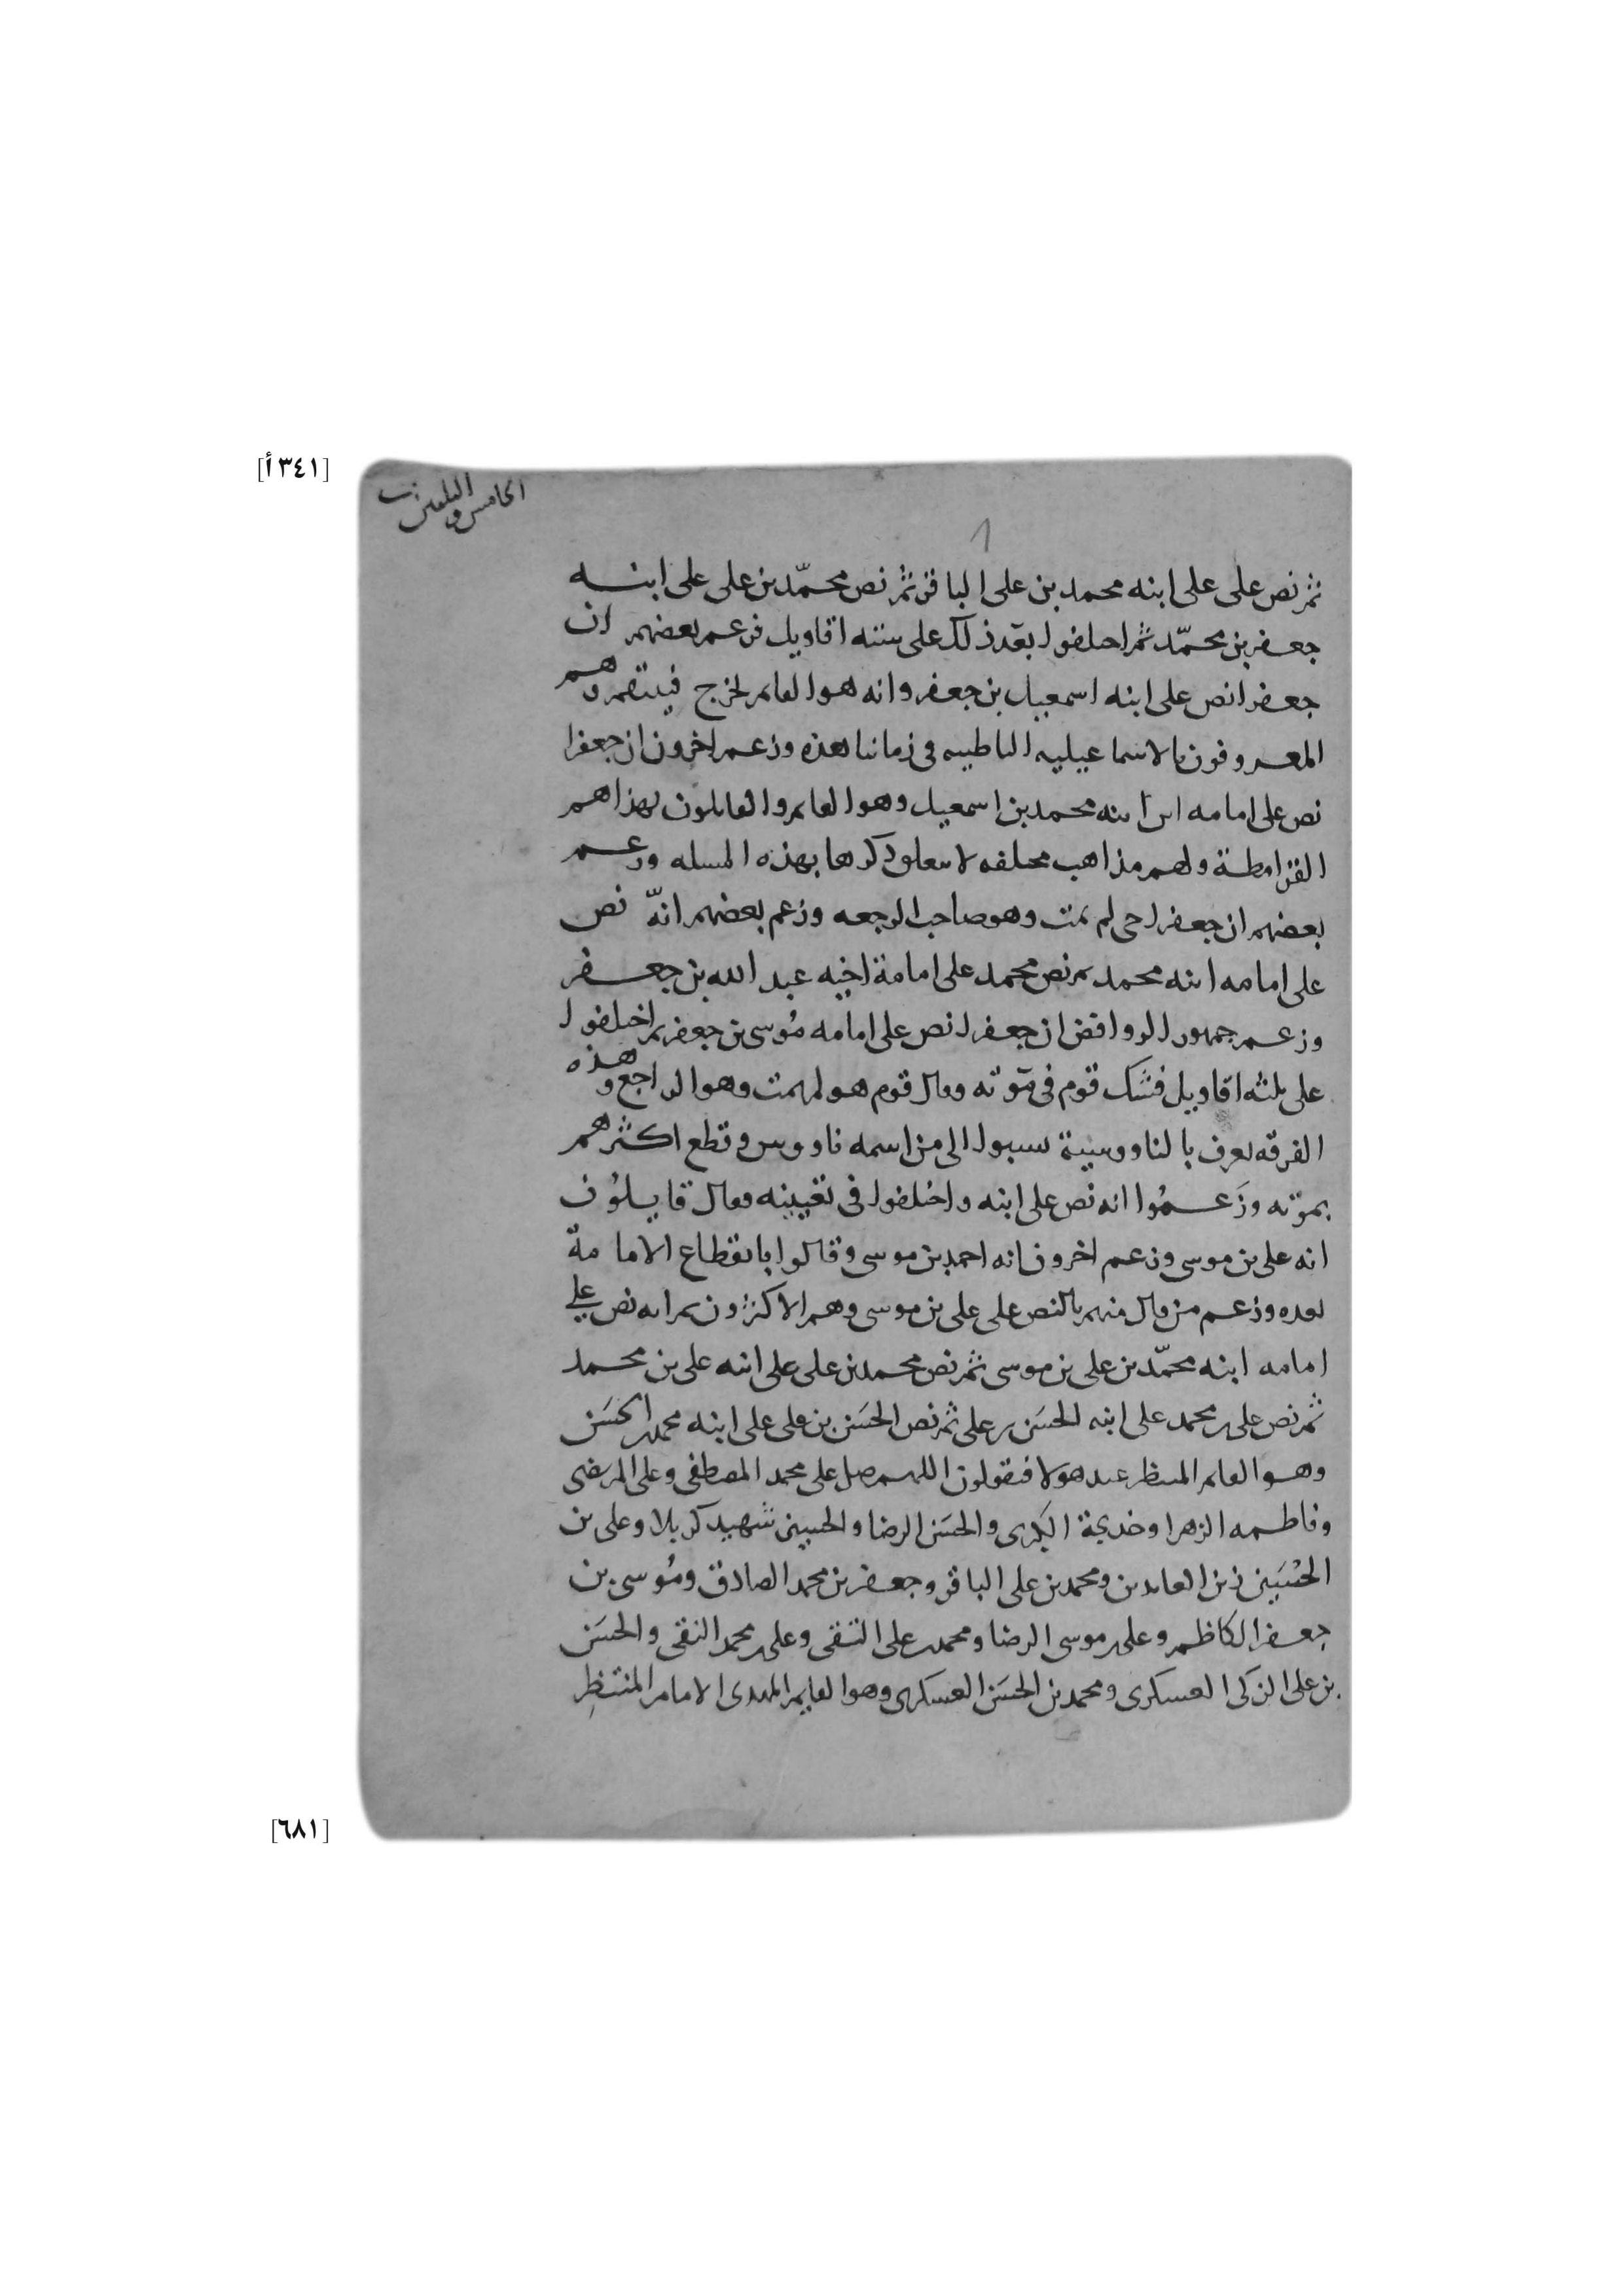 [٣٤١أ]
الخامس والثلثين
ثم نص على على ابنه محمد بن على الباقر ثم نص محمّد بن على على ابنه
جعفر بن محمّد ثم اختلفوا بعد ذلك على ستة اقاويل فزعم بعضهم ان
جعفرا نص على ابنه اسمعيل بن جعفر وانه هو القايم يخرج فينتقم وهم
المعروفون بالاسماعيليه الباطنيه فى زماننا هذه وزعم اخرون ان جعفرا
نص على امامه ابن ابنه محمد بن اسمعيل وهو القايم والقايلون بهذا هم
القرامطة ولهم مذاهب مختلفه لا يتعلق ذكرها بهذه المسله وزعم
بعضهم ان جعفرا حى لم يمت وهو صاحب الرجعه وزعم بعضهم انّه نص
على امامه ابنه محمد ثم نص محمد على امامة اخيه عبد الله بن جعفر
وزعم جمهور الروافض ان جعفرا نص على امامه مُوسى بن جعفر ثم اختلفوا
على ثلثه اقاويل فشك قوم فى موته وقال قوم هو لم يمت وهو الراجع وهذه
الفرقه تعرف بالناووسية نسبوا الى من اسمه ناووس وقطع اكثرهم
بموته وزَعمُوا انه نص على ابنه واختلفوا فى تعيينه فقال قايلُون
انه على بن موسى وزعم اخرون انه احمد بن موسى وقالوا بانقطاع الامامة
بعده وزعم من قال منهم بالنص على على بن موسى وهم الاكثرون ثم انه نص على
امامه ابنه محمّد بن على بن موسى ثم نص محمد بن على على ابنه على بن محمد
ثم نص على بن محمد على ابنه الحسَن بن على ثم نص الحسَن بن على على ابنه محمد بن الحسَن
وهو القايم المنتظر عند هولا فيقولون اللهم صل على محمد المصطفى وعلى المرتضى
وفاطمه الزهرا وخديجة الكبرى والحسَن الرضا والحسين شهيد كربلا وعلى بن
الحسَين زين العابدين ومحمد بن على الباقر وجعفر بن محمد الصادق ومُوسى بن
جعفر الكاظم وعلى بن موسى الرضا ومحمد بن على التقى وعلى بن محمد النقى والحسَن
بن على الزكى العسكرى ومحمد بن الحسَن العسكرى وهو القايم المهدى الامام المنتظِر
[٦٨١]